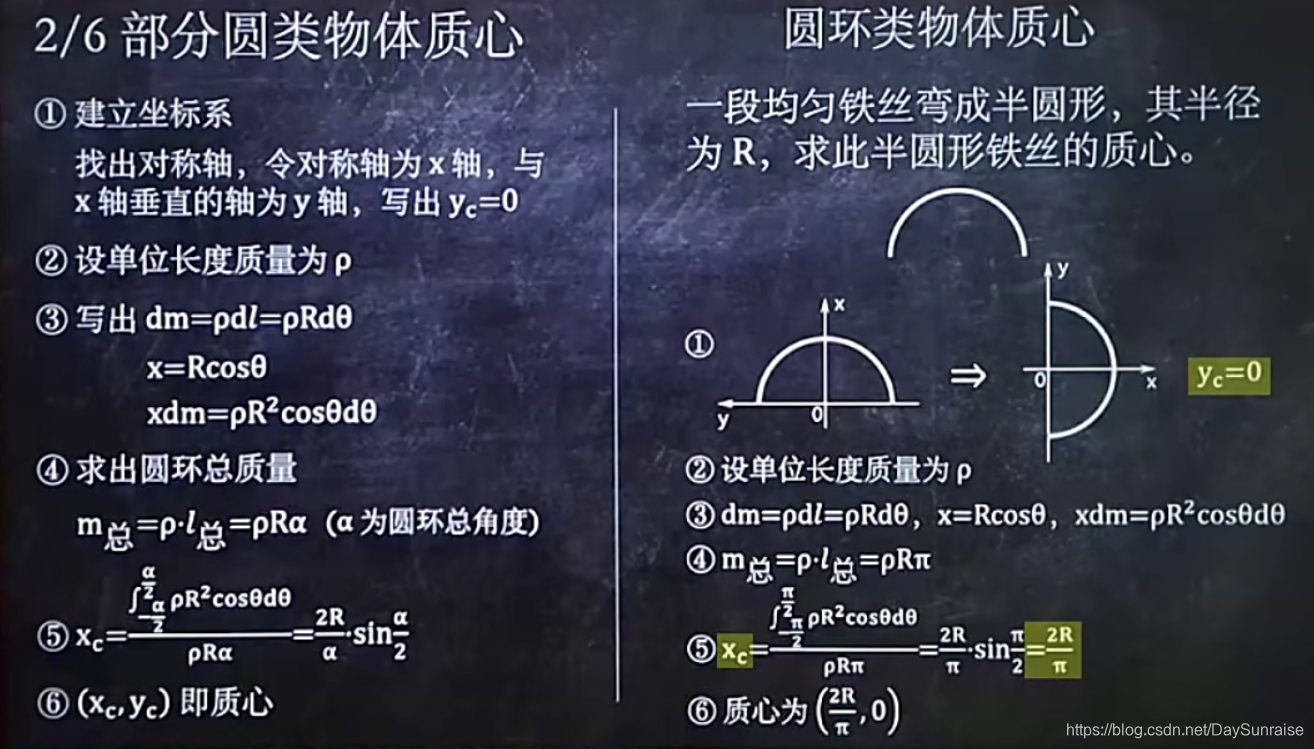 2/6 部分圆类物体质心
① 建立坐标系
找出对称轴，令对称轴为 x 轴，与
x 轴垂直的轴为 y 轴，写出 y_c=0
② 设单位长度质量为 ρ
③ 写出 dm=ρdl=ρRdθ
x=Rcosθ
xdm=ρR²cosθdθ
④ 求出圆环总质量
m总=ρ·l总=ρRα（α 为圆环总角度）
⑤ x_c=∫_{-α/2}^{α/2} ρR²cosθdθ / ρRα = 2R/α · sin α/2
⑥ (x_c,y_c) 即质心
圆环类物体质心
一段均匀铁丝弯成半圆形，其半径
为 R，求此半圆形铁丝的质心。
①
x
y
0
⇒
y
0
x
y_c=0
② 设单位长度质量为 ρ
③ dm=ρdl=ρRdθ，x=Rcosθ，xdm=ρR²cosθdθ
④ m总=ρ·l总=ρRπ
⑤ x_c=∫_{-π/2}^{π/2} ρR²cosθdθ / ρRπ = 2R/π · sin π/2 = 2R/π
⑥ 质心为 (2R/π, 0)
https://blog.csdn.net/DaySunraise